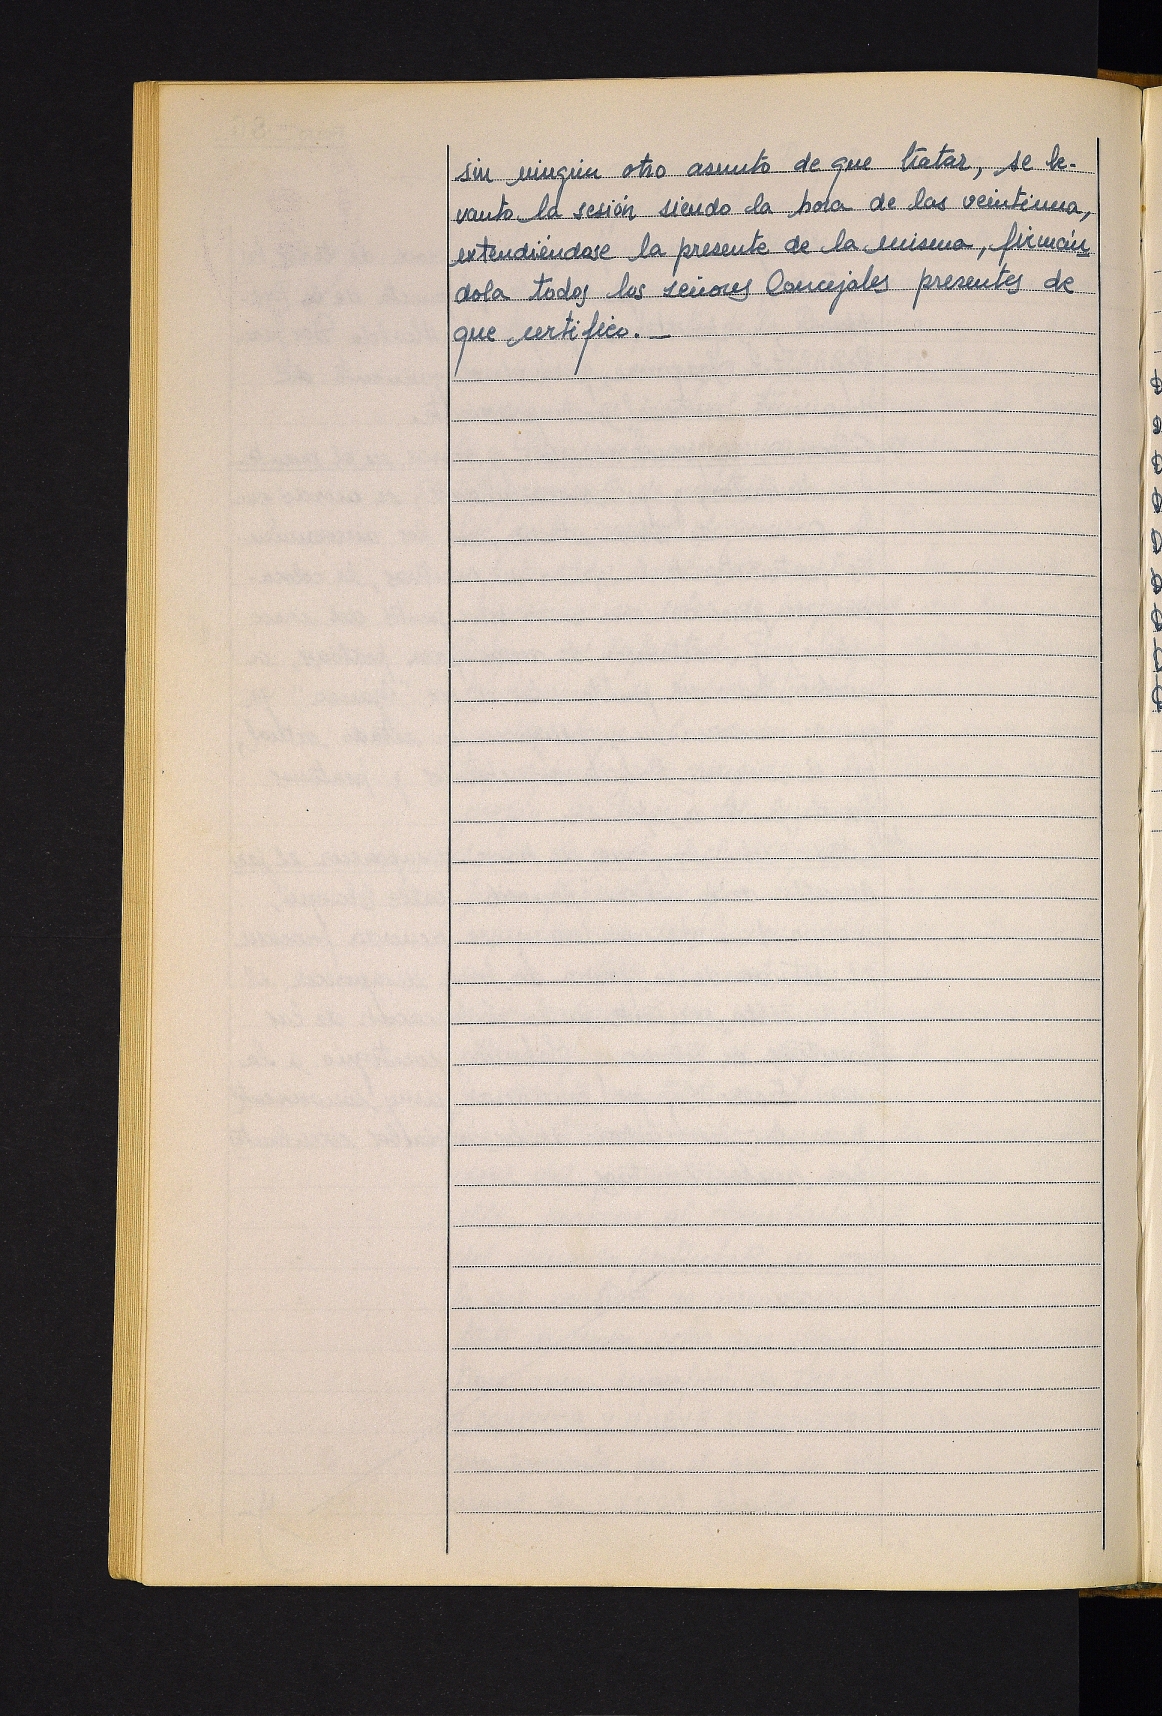 sin ningún otro asunto de que tratar, se le-
vanto la sesión siendo la hora de las veintiuna,
extendiéndose la presente de la misma, firmán
dola todos los señores Concejales presentes de
que certifico. —